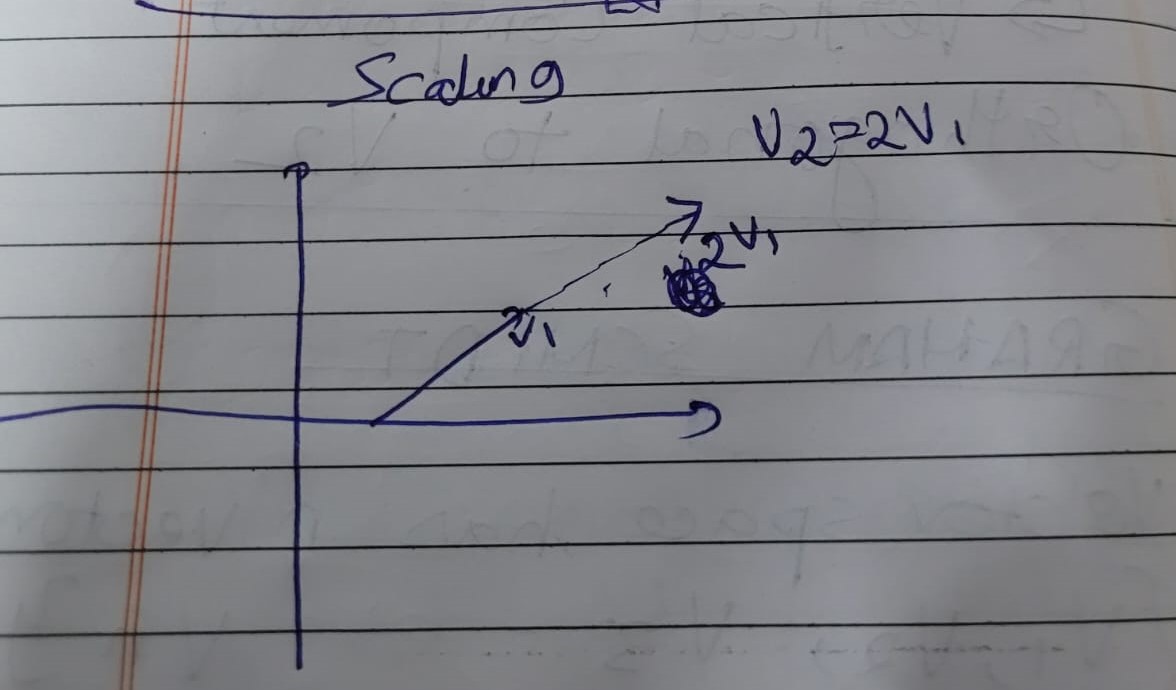 Scaling
V2=2V1
2V1
V1